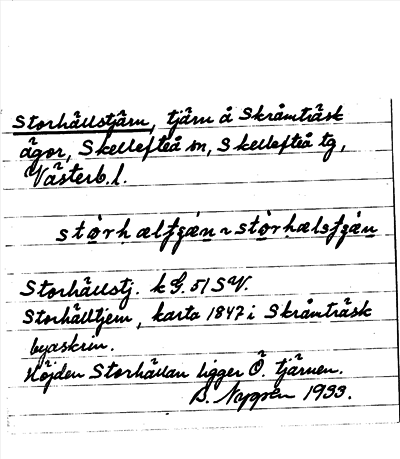 Storhällstjärn, tjärn å Skråmträsk
ägor, Skellefteå sn, Skellefteå tg,
Västerb. l.
Storhällstj. k G. 51 SV.
Storhälltjern, karta 1847 i Skråmträsk
byaskrin.
Höjden Storhällan ligger Ö. tjärnen.
B. Nygren 1933.